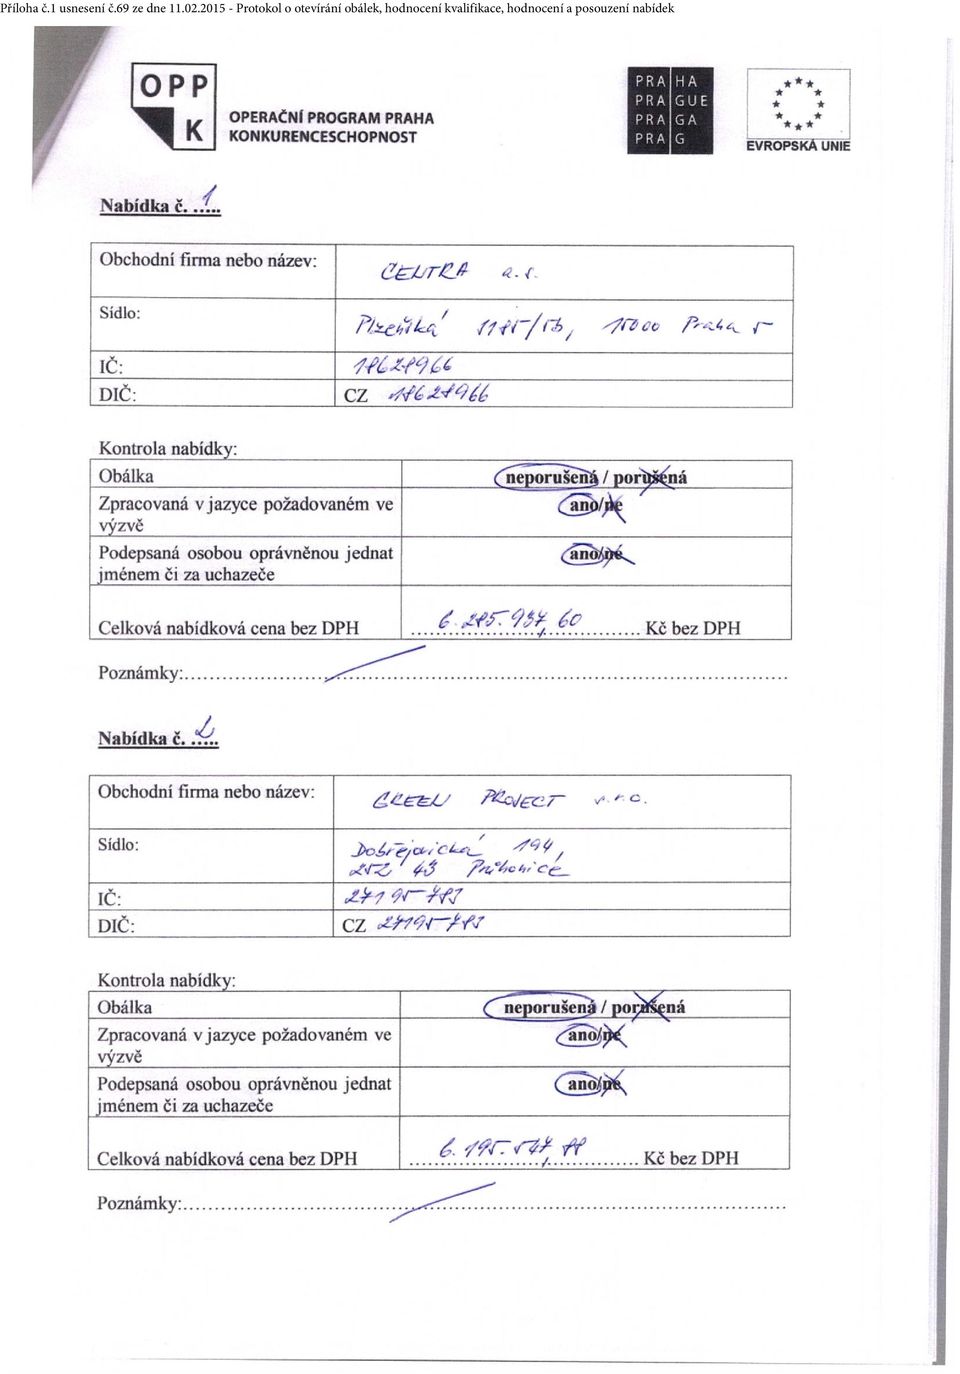 Příloha č.1 usnesení č.69 ze dne 11.02.2015 - Protokol o otevírání obálek, hodnocení kvalifikace, hodnocení a posouzení nabídek
OPP
K
OPERAČNÍ PROGRAM PRAHA
KONKURENCESCHOPNOST
PRA HA
PRA GUE
PRA GA
PRA G
EVROPSKÁ UNIE
Nabídka č. 1
Obchodní firma nebo název: CENTRA a.s.
Sídlo: Plzeňská 1185/5b, 15000 Praha 5
IČ: 18628966
DIČ: CZ 18628966
Kontrola nabídky:
Obálka neporušená / porušená
Zpracovaná v jazyce požadovaném ve ano/ne
výzvě
Podepsaná osobou oprávněnou jednat ano/ne
jménem či za uchazeče
Celková nabídková cena bez DPH 6.285.937,60 Kč bez DPH
Poznámky:
Nabídka č. 2
Obchodní firma nebo název: GREEN PROJECT s.r.o.
Sídlo: Dobřejovická 194,
252 43 Průhonice
IČ: 27195783
DIČ: CZ 27195783
Kontrola nabídky:
Obálka neporušená / porušená
Zpracovaná v jazyce požadovaném ve ano/ne
výzvě
Podepsaná osobou oprávněnou jednat ano/ne
jménem či za uchazeče
Celková nabídková cena bez DPH 6.195.547,88 Kč bez DPH
Poznámky: